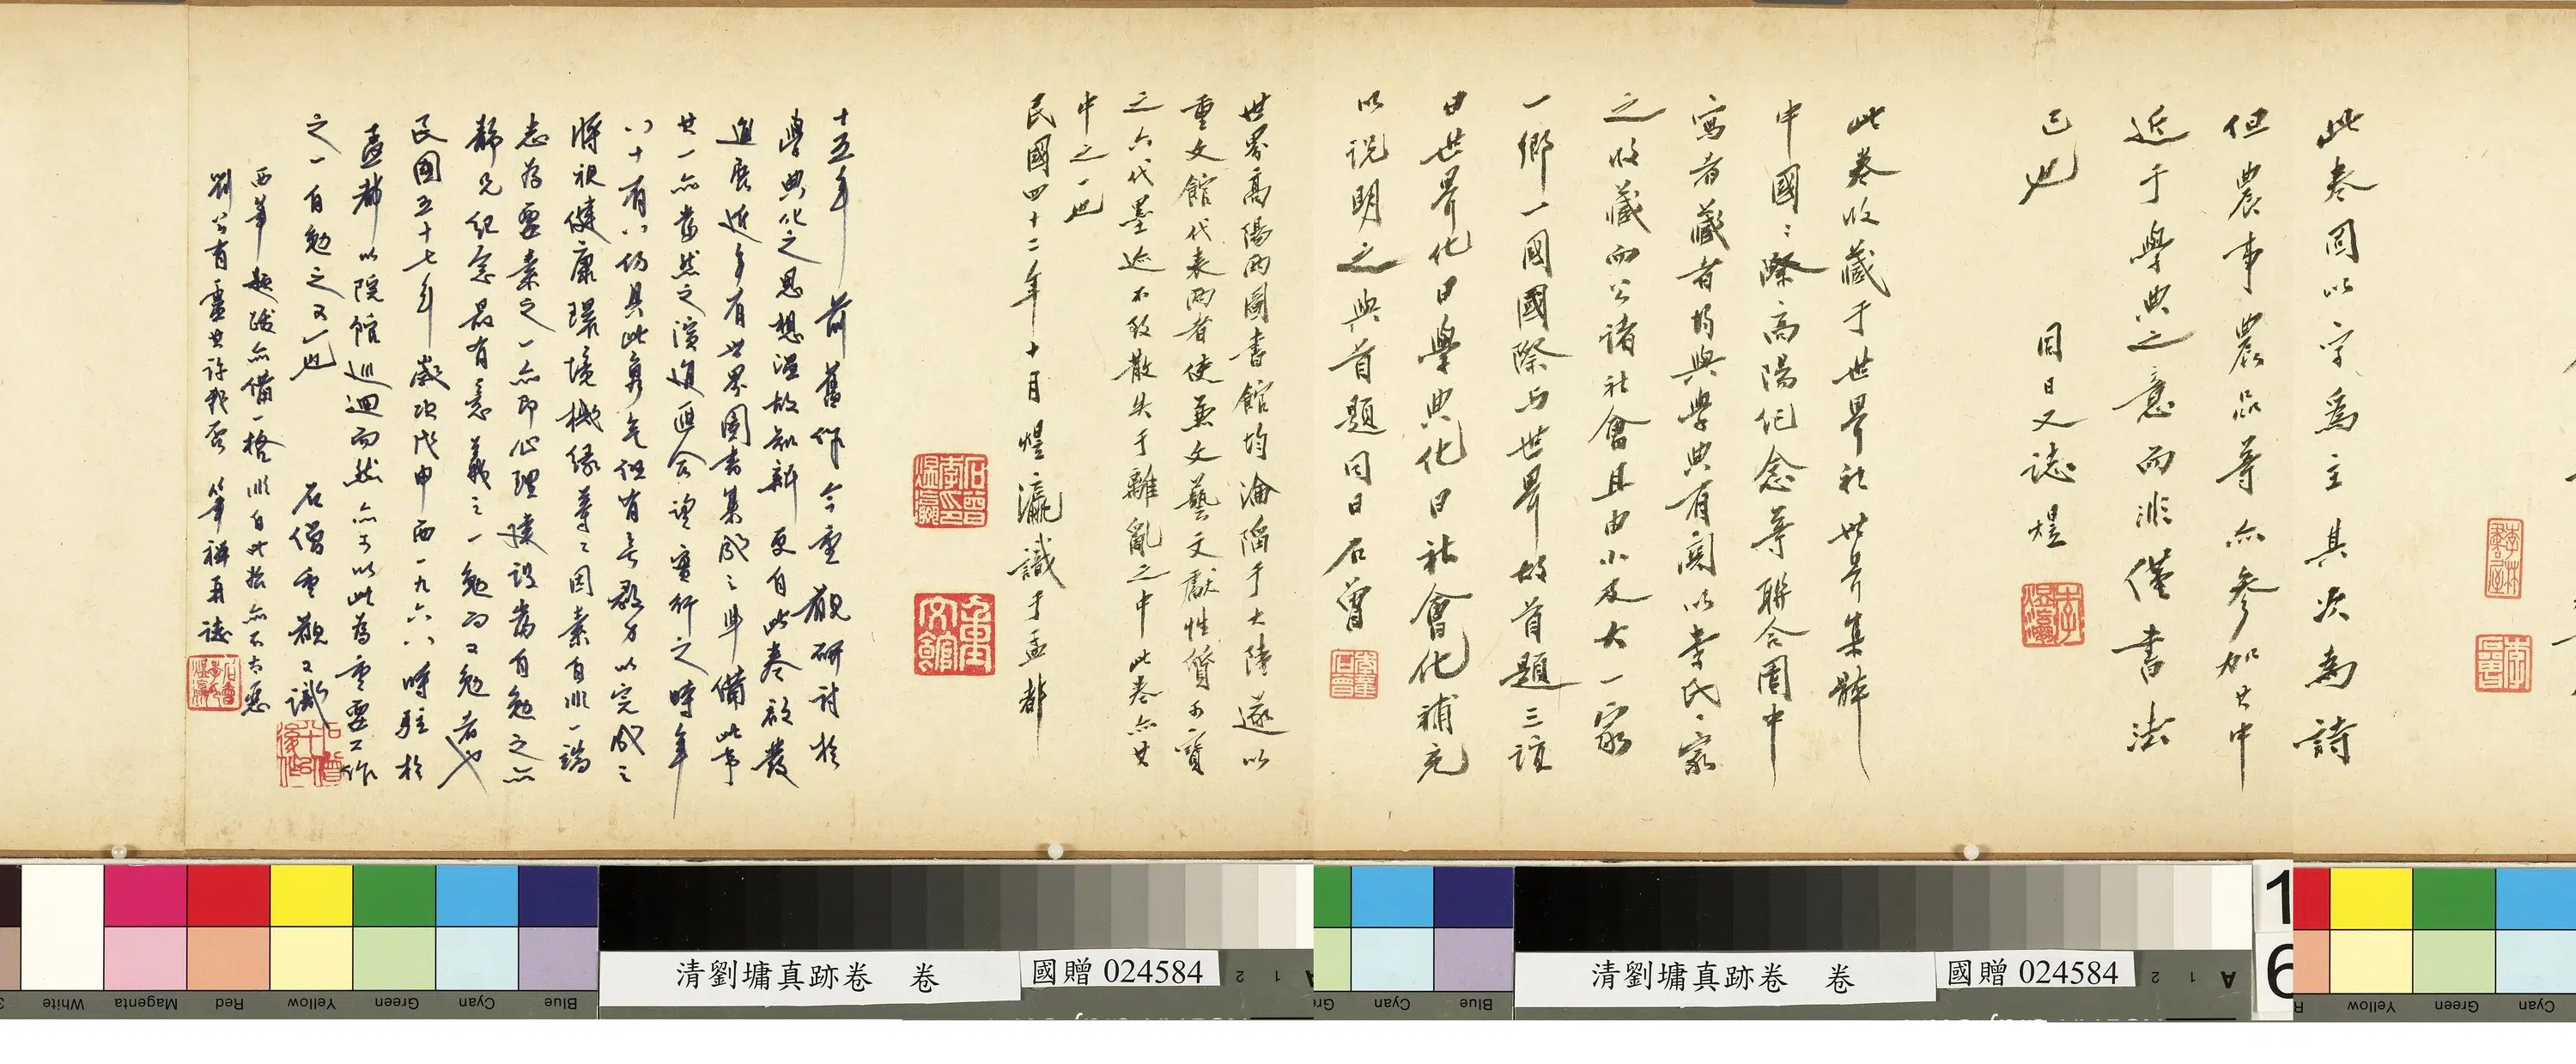 此卷固以字為主其次為詩
但農事農品等亦參加其中
近于學典之意而非僅書法
已也
同日又誌煜
此卷收藏于世界社世界集群
中國:際高陽紀念等聯合圖中
寫者藏者均與學典有關以李氏一家
之收藏而公諸社會且由小及大一家
一鄉一國國際与世界故首題三誼
曰世界化曰學典化曰社會化補充
以說明之與首題同日石曾
世界高陽兩圖書館均淪陷于大陸遂以
重文館代表兩者使並文藝文獻性質可寶
之六代墨迹不致散失于離亂之中此卷亦其
中之一也
民國四十二年十月煜瀛識于孟都
十五年前舊作今重觀研討於
學典化之思想溫故知新更自此卷啟發
進展近年有世界圖書集成之舉備此市
其一亦當然之演進運會謹實行之時年
八十有八仍具此勇氣但皆有長群力以完成之
將視健康環境機緣等之因素自非一端
志為要素之一亦即心理建設當自勉之亦
靜兄紀念最有意義之一勉而又勉者也
民國五十七年歲次戊申西一九六八時駐於
孟都以院館巡迴而然亦可以此為重要工作
之一自勉之又一也
石僧重觀又識
西筆題跋亦備一格非自此始亦不太惡
劉公有靈其許我否筆禪再誌
李石曾
重文館
清劉墉真跡卷 卷
國贈 024584
清劉墉真跡卷 卷
國贈 024584
White Magenta Red Yellow Green Cyan Blue
2 1 A
Cyan Blue
2 1 A
Yellow Green Cyan